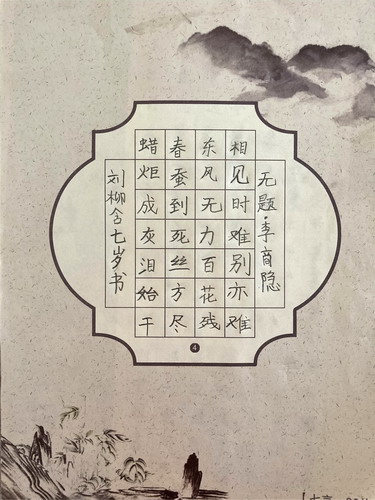 无题·李商隐
相见时难别亦难
东风无力百花残
春蚕到死丝方尽
蜡炬成灰泪始干
刘柳含七岁书
4